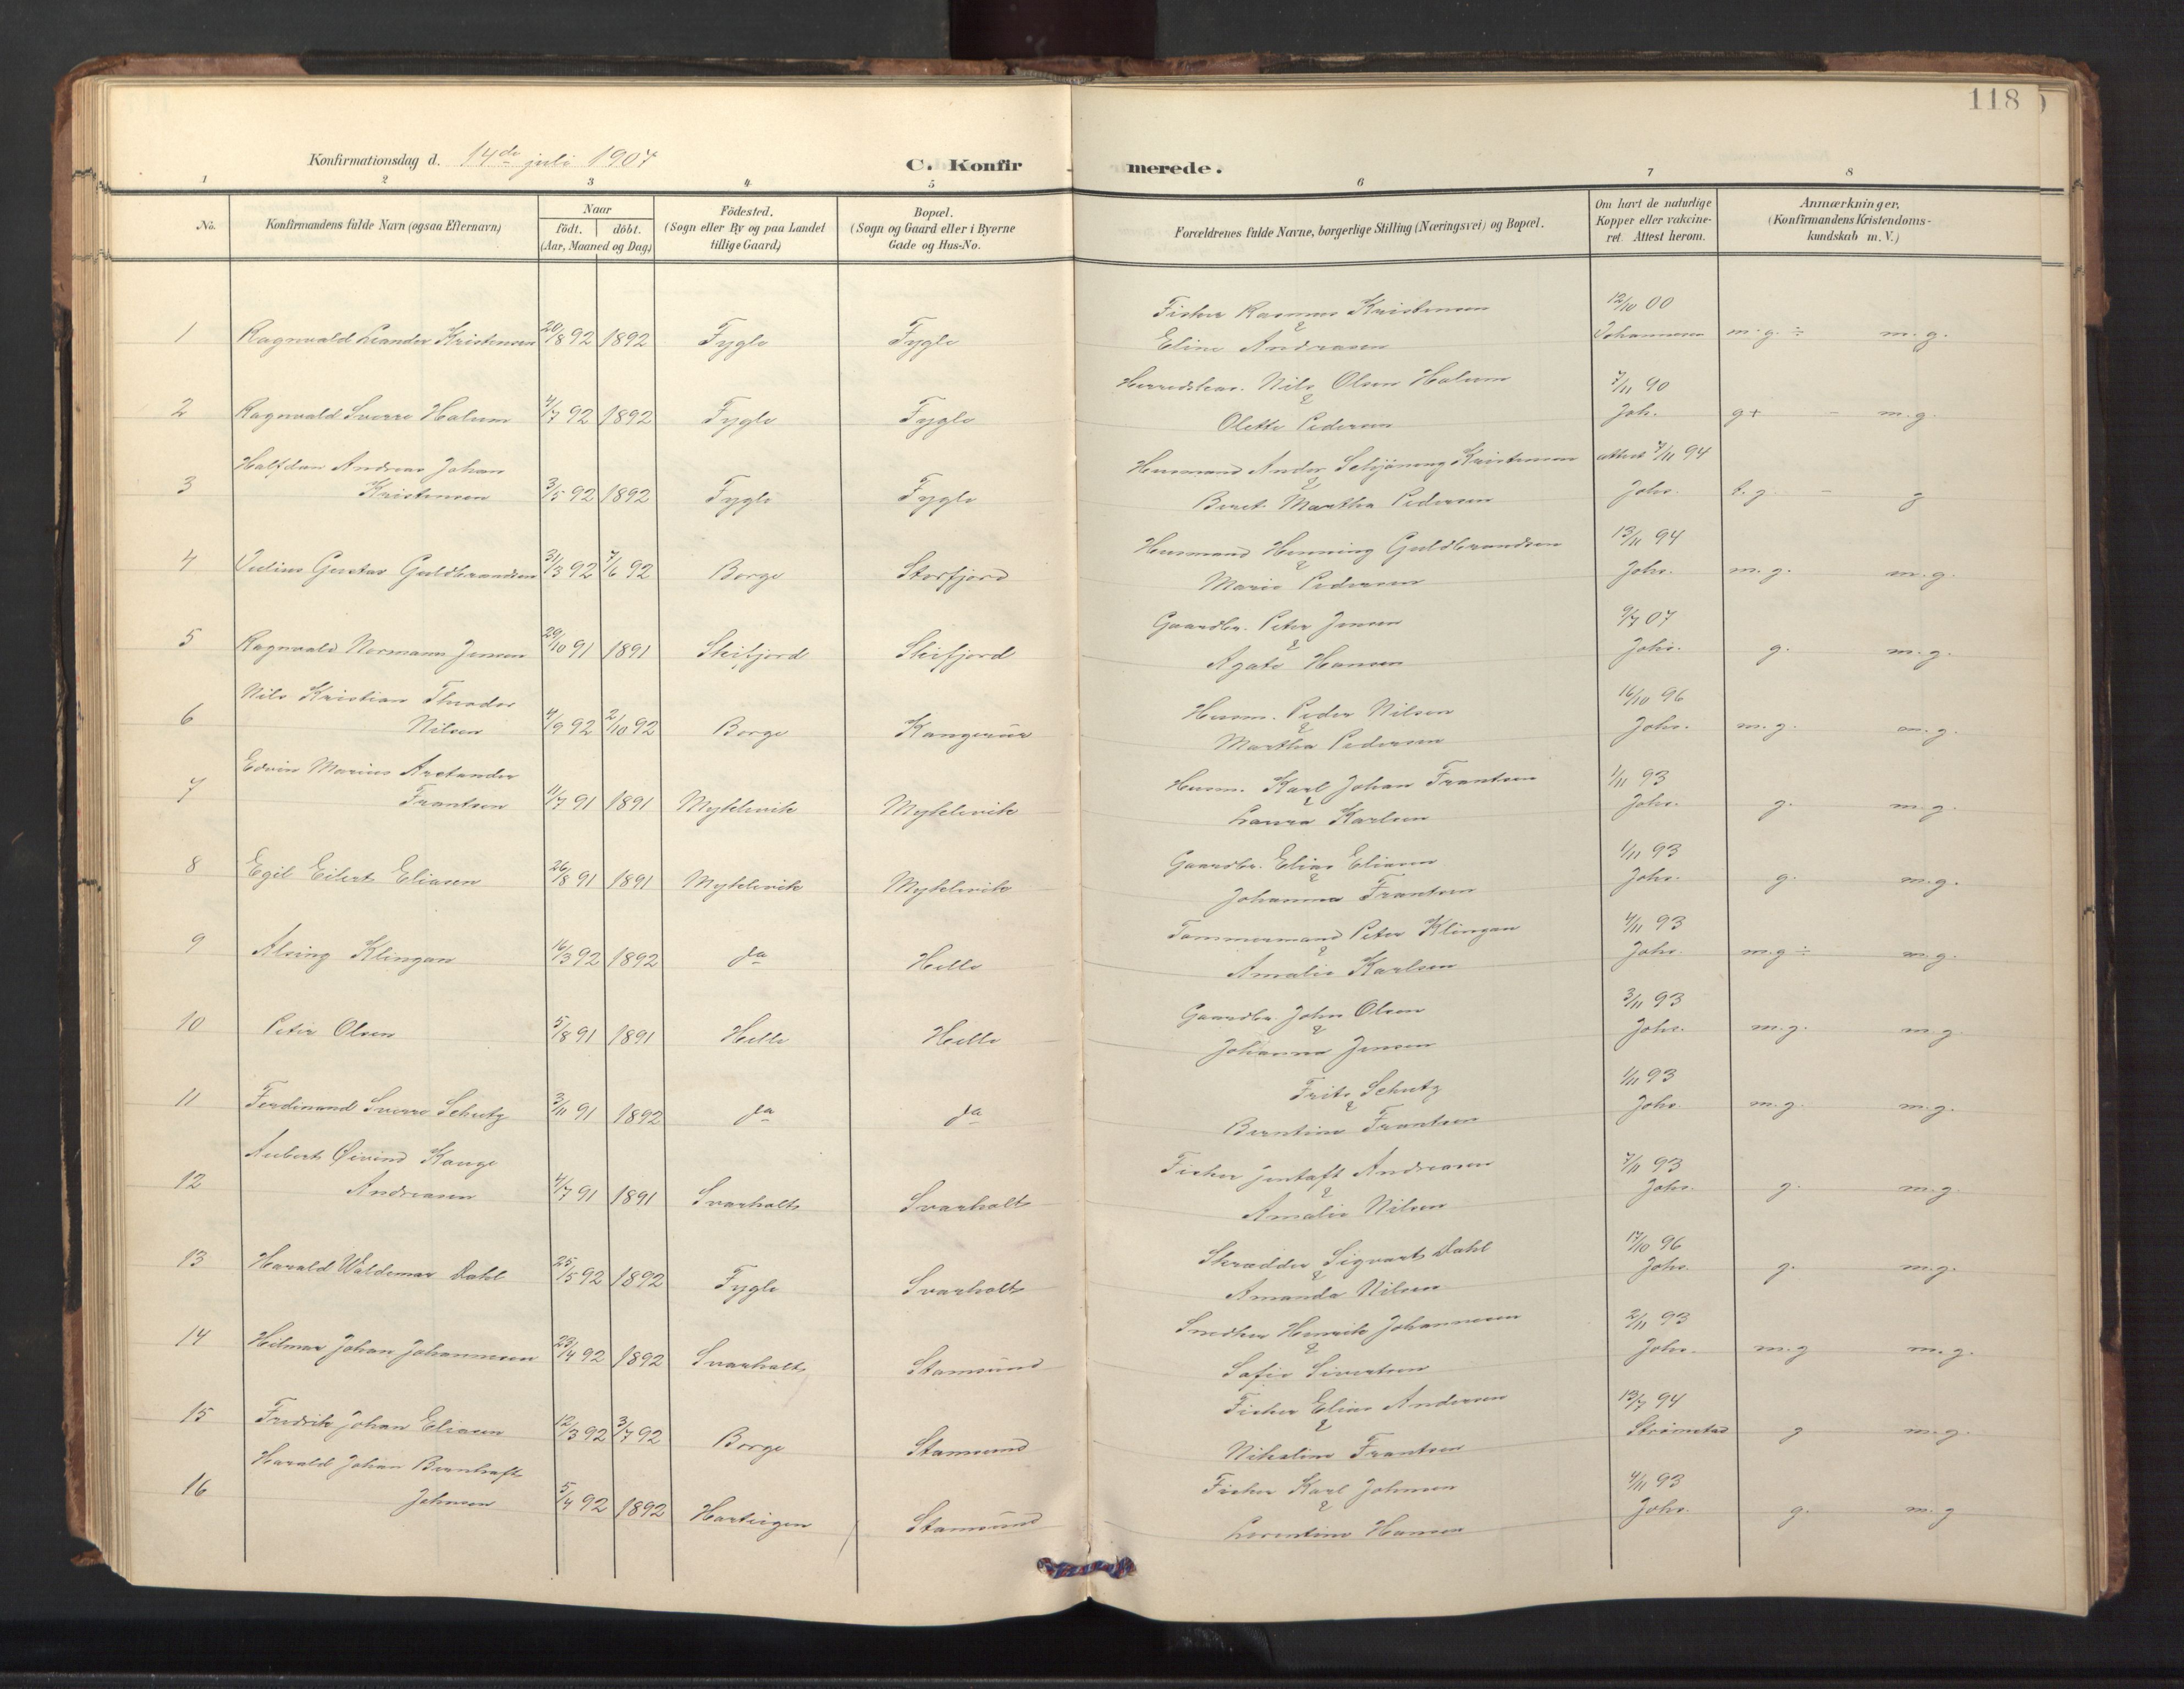 118
Konfirmationsdag d. 14de juli 1907
C. Konfirmerede.
1 2 3 4 5 6 7 8
No.
Konfirmandens fulde Navn (ogsaa Efternavn)
Naar
født. døbt.
(Aar, Maaned og Dag)
Fødested.
(Sogn eller By og paa Landet
tillige Gaard)
Bopæl.
(Sogn og Gaard eller i Byerne
Gade og Hus-No.
Forældrenes fulde Navne, borgerlige Stilling (Næringsvei) og Bopæl.
Om havt de naturlige
Kopper eller vakcine-
ret. Attest herom.
Anmærkninger,
(Konfirmandens Kristendoms-
kundskab m. V.)
Fisker Rasmus Kristensen 12/10 00
1 Ragnvald Leander Kristensen 20/8 92 1892 Fygle Fygle & Eline Andreasen Johannesen m.g. ÷ m.g.
Nils Olsen Halum 7/11 90
2 Ragnvald Sverre Halum 4/7 92 1892 Fygle Fygle & Olette Pedersen Joh. g+ - m.g.
Halfdan Andreas Johan
Husmand Ander Schjøning Kristensen attest 7/11 94
3 Kristensen 3/5 92 1892 Fygle Fygle & Beret Martha Pedersen Johs. t.g. - g
Husmand Henning Guldbrandsen 13/11 94
4 Julius Gustav Guldbrandsen 31/3 92 7/6 92 Borge Storfjord & Marie Pedersen Johs. m.g. m.g.
Gaardbr. Peter Jensen 9/7 07
5 Ragnvald Normann Jensen 29/10 91 1891 Skifjord Skifjord & Agate Hansen Johs. g. m.g.
Nils Kristian Theodor
Husm. Peder Nilsen 16/10 96
6 Nilsen 4/9 92 2/10 92 Borge & Martha Pedersen Johs. m.g. m.g.
Edvin Marius Aretander
Husm. Karl Johan Frantsen 1/11 93
7 Frantsen 11/7 91 1891 Myklevik Myklevik & Laura Karlsen Johs. g. m.g.
Gaardbr. Elias Eliasen 1/11 93
8 Egil Eilert Eliasen 26/8 91 1891 Myklevik Myklevik & Johanna Frantsen Johs. g. m.g.
Tømmermand Peter Klingan 4/11 93
9 Alving Klingan 16/3 92 1892 da Helle & Amalie Karlsen Johs. m.g ÷ m.g.
Gaardbr. John Olsen 3/11 93
10 Peter Olsen 5/8 91 1891 Helle Helle & Johanna Jensen Johs. m.g. m.g.
Frits Schutz 1/11 93
11 Ferdinand Sverre Schutz 3/11 91 1892 da da & Berntine Frantsen Johs. m.g. m.g.
Aubert Øivind Kauge
Fisker Jentoft Andreasen 7/11 93
12 Andreasen 4/7 91 1891 Svarholt Svarholt & Amalie Nilsen Johs. g. m.g.
Skrædder Sigvart Dahl 17/10 96
13 Harald Waldemar Dahl 25/5 92 1892 Fygle Svarholt & Amanda Nilsen Johs. g. m.g.
Snedker Henrik Johannesen 2/11 93
14 Hilmar Johan Johannesen 23/4 92 1892 Svarholt Stamsund & Sofie Sivertsen Johs. m.g m.g.
Fisker Elias Andersen 13/7 94
15 Fredrik Johan Eliasen 12/3 92 3/7 92 Borge Stamsund & Nikoline Frantsen Strømstad g m.g.
Harald Johan Bernhaft
Fisker Karl Johnsen 4/11 93
16 Johnsen 5/4 92 1892 Hartvigen Stamsund & Lorentine Hansen Johs. g. m.g